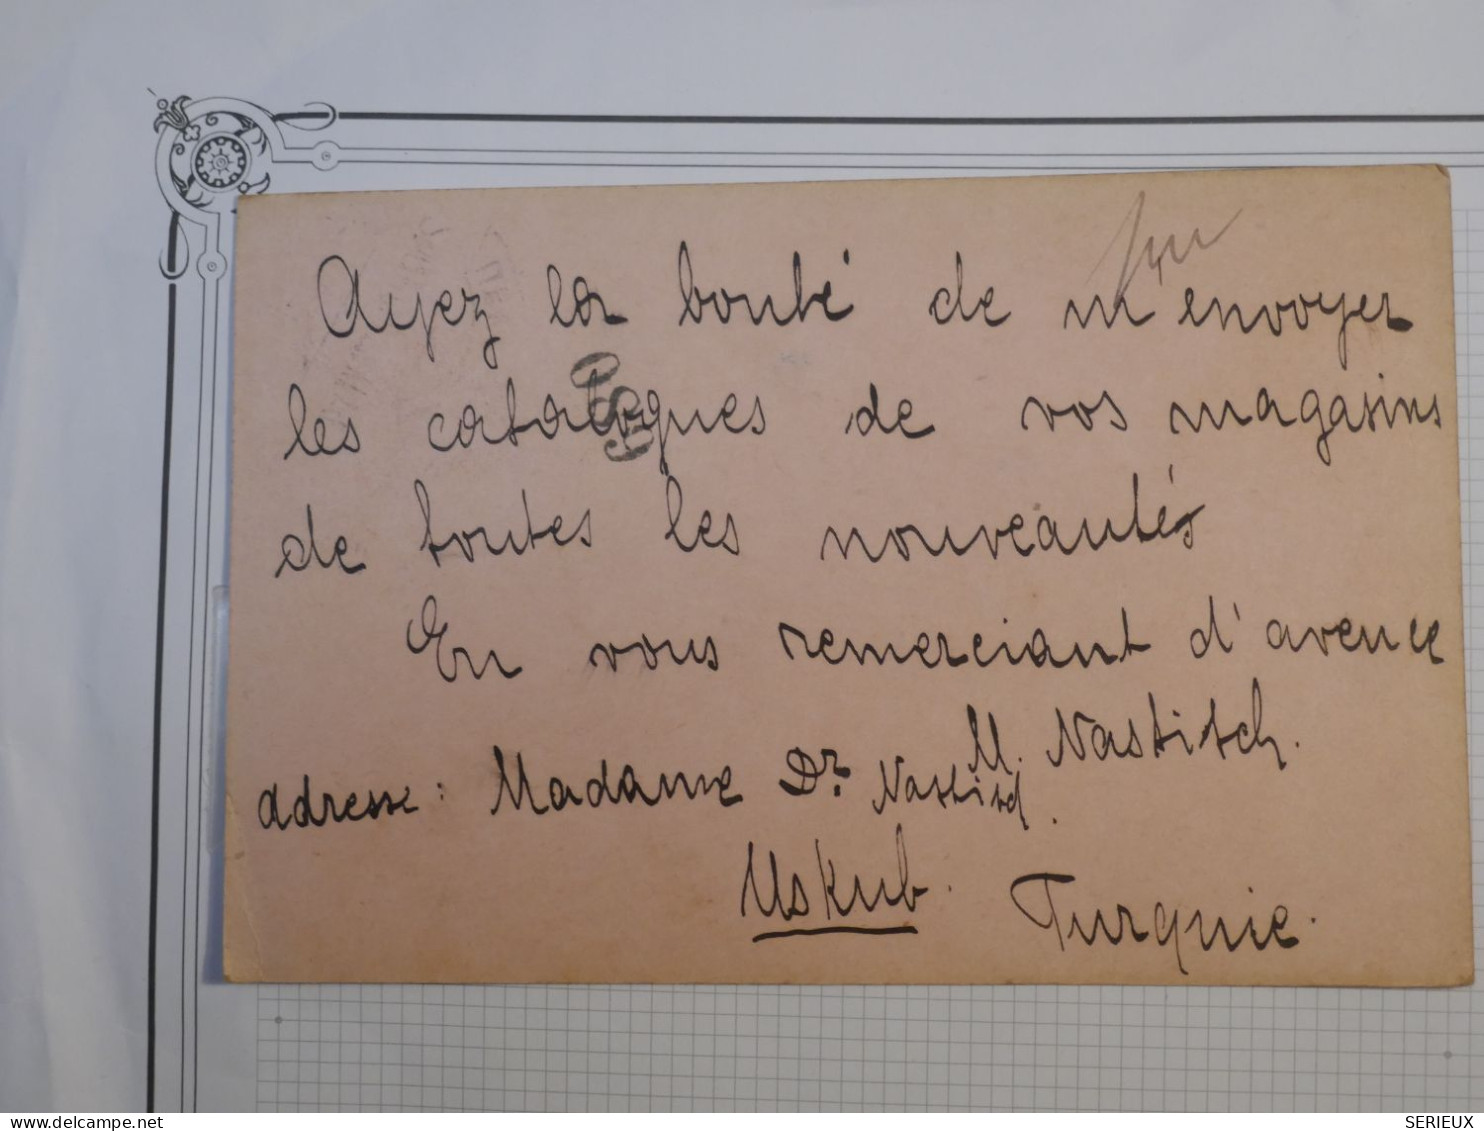 Ayez la bonté de m'envoyer
les catalogues de vos magasins
de toutes les nouveautés
En vous remerciant d'avence
M. Nastitch.
adresse: Madame Dr. Nastitch.
Uskub. Turquie.
delcampe.net
SERIEUX